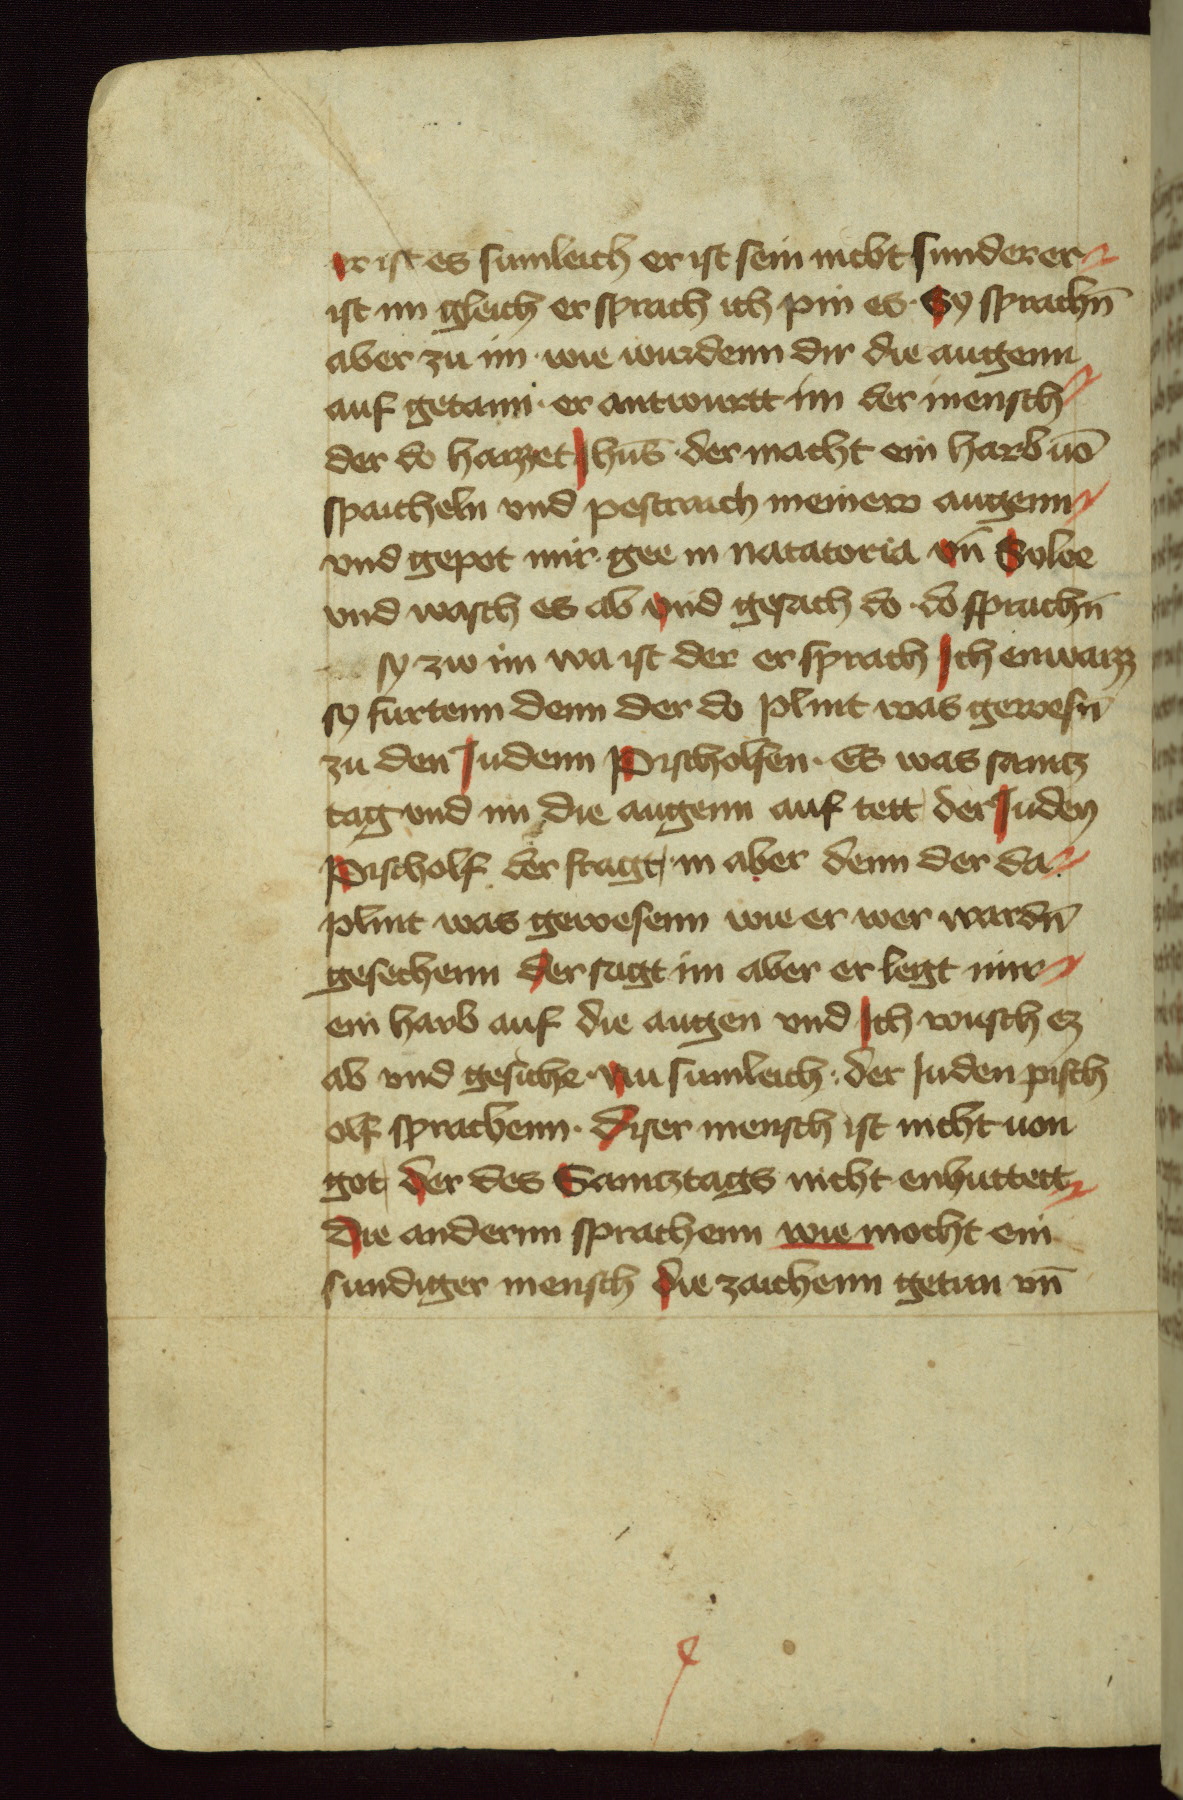 er ist es sumleich er ist sein nicht sunder er
ist im gleich er sprach ich pin es · Sy sprachn̄
aber zu im · wie wurdenn dir die augenn
auf getann · er antwurtt im der mensch
der do haizzet Jhūs · der macht ein harb uō
spaicheln vnd pestraich meinew augenn
vnd gepot mir · gee in natatoria vn̄ Syloe
vnd wasch es ab vnd gesach do · do sprachn̄
sy zw im wa ist der er sprach Ich enwaizz
sy furtenn denn der do plint was gewesn̄
zu den Judenn Pischolfen · Es was samtz
tag vnd im die augenn auf tett der Juden
Pischolf der fragt in aber denn der da
plint was gewesenn wie er wer wardn̄
gesechenn der sagt im aber er legt mir
ein harb auf die augen vnd Ich wusch ez
ab vnd gesiche · Nu sumleich · der Juden pisch
olf sprachenn · Diser mensch ist nicht uon
got der des Samtztags nicht enhuttett
Die andernn sprachenn wie mocht ein
sundiger mensch die zaichenn getun vn̄